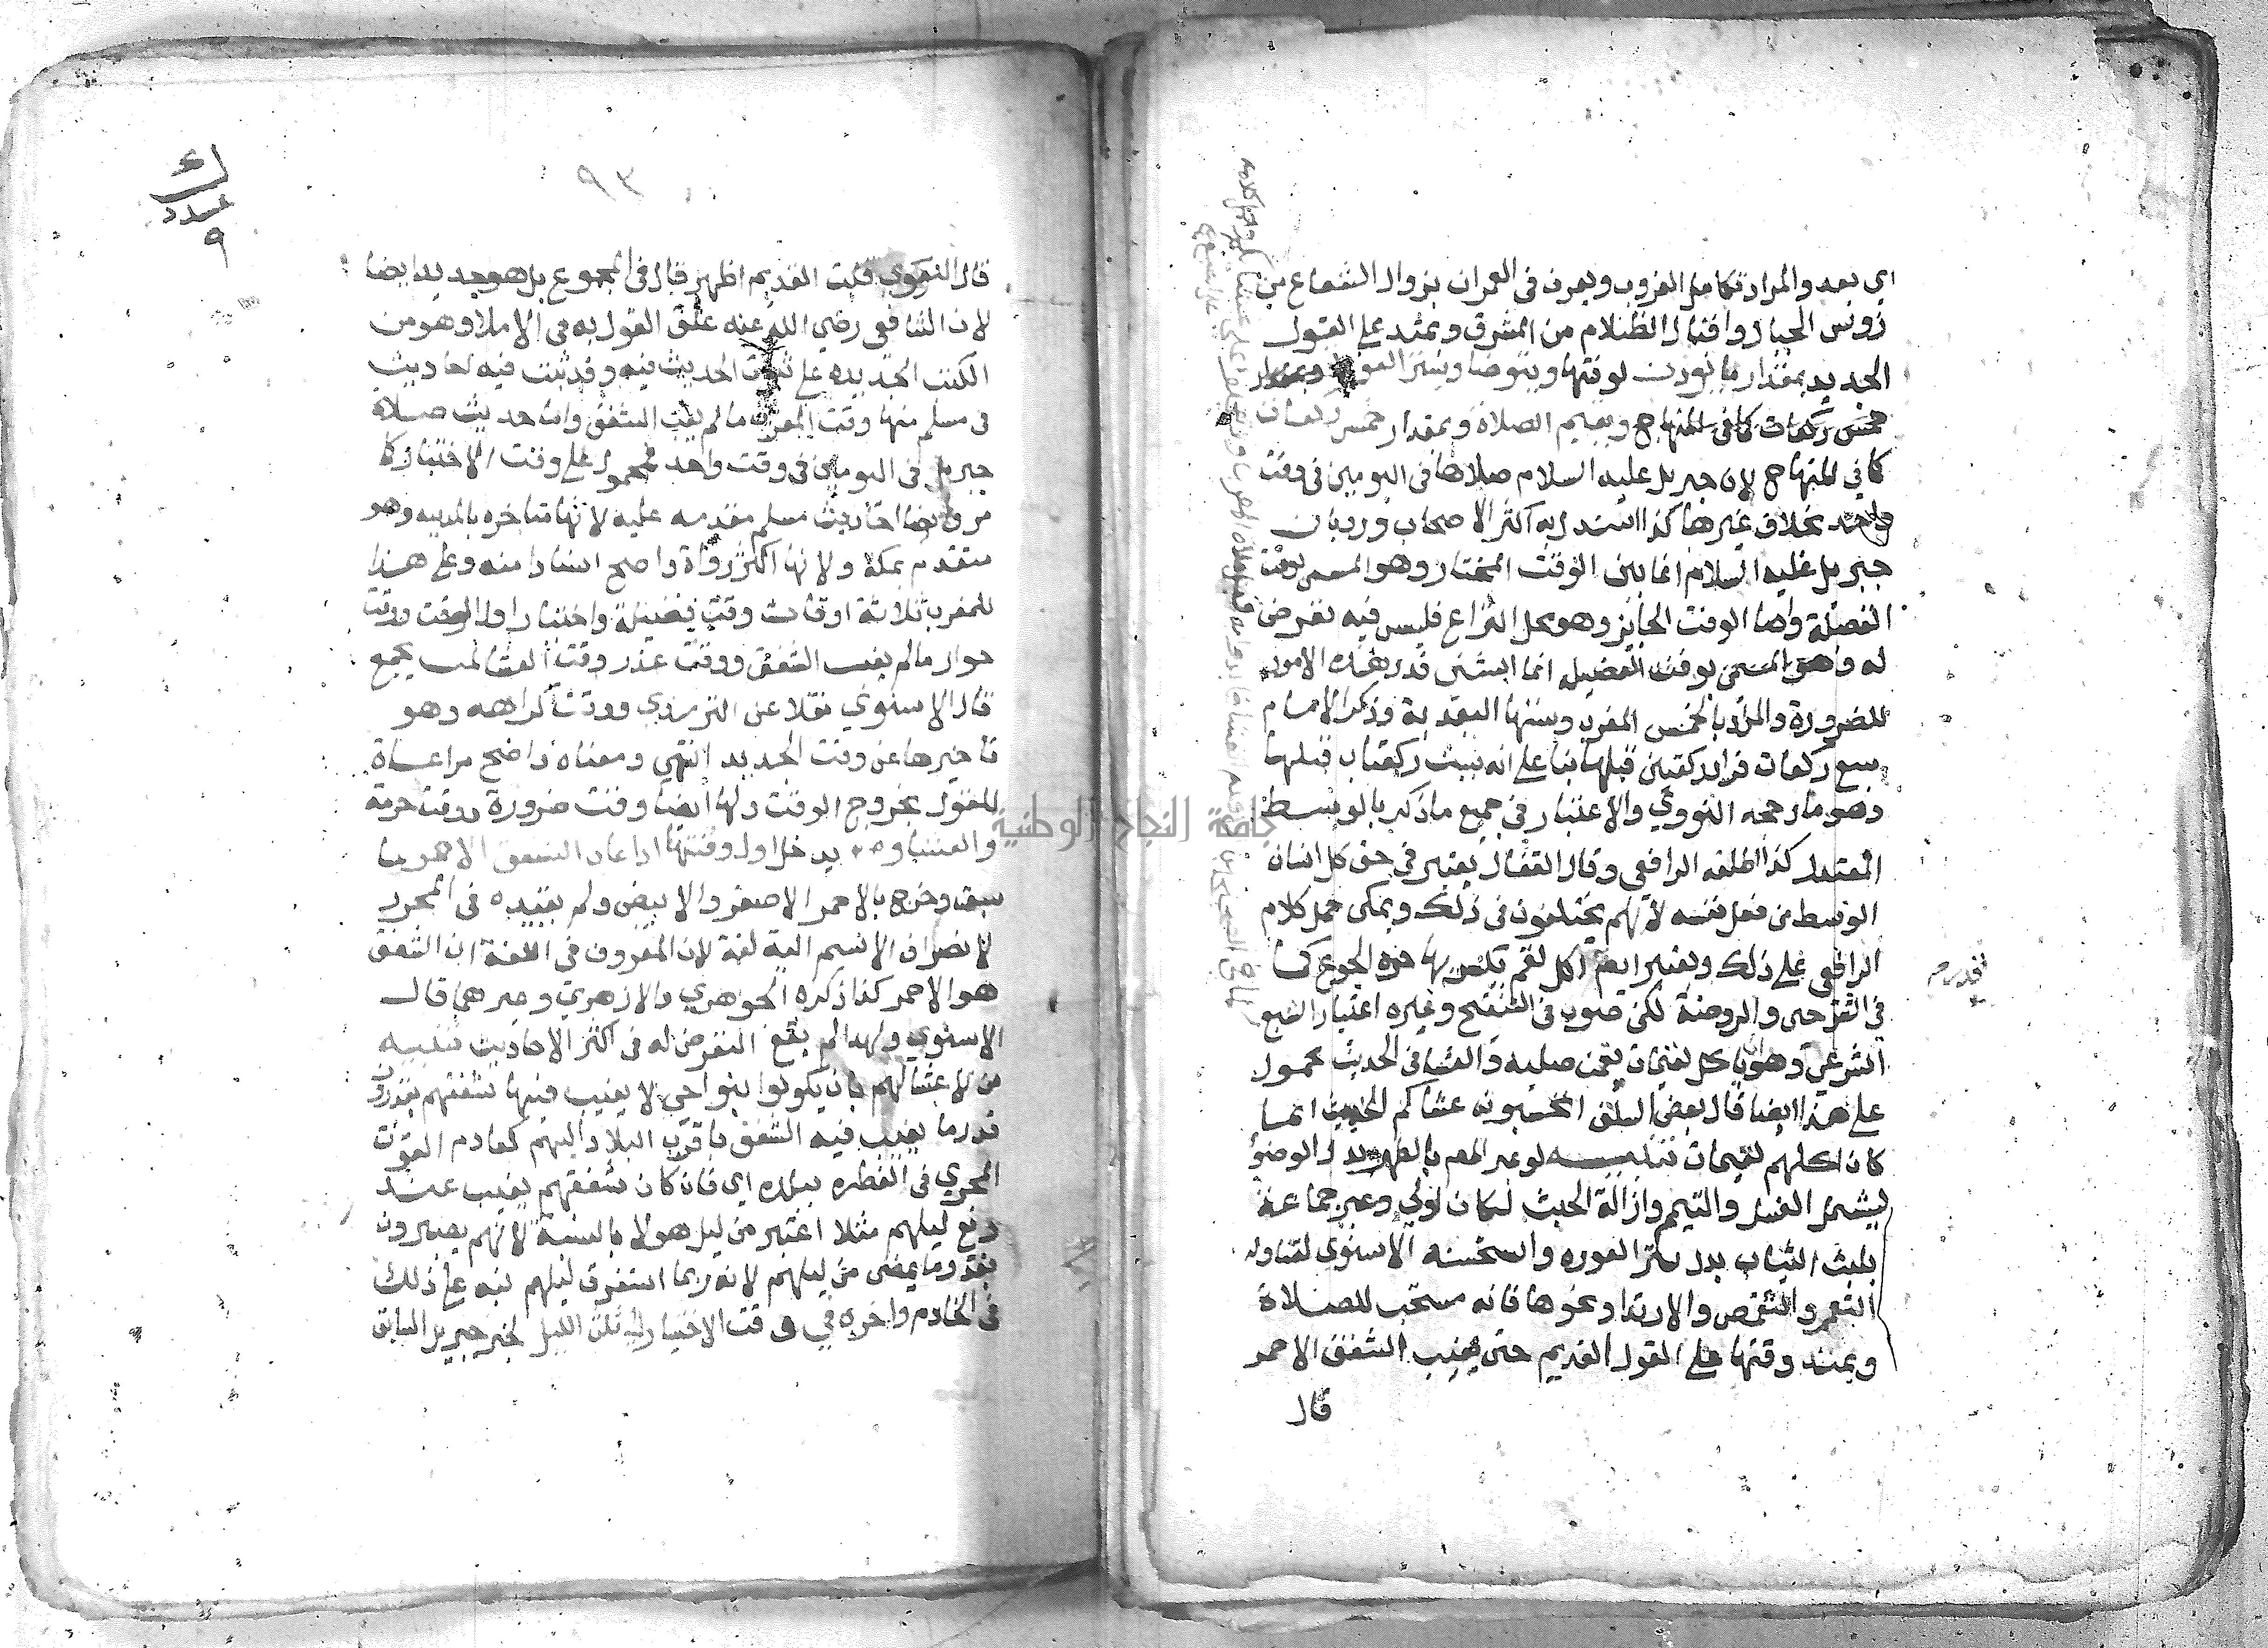 اي بعده والمراد تكامل الغروب ويعرف في العمران بزوال الشعاع من
رؤس الجبال واقبال الظلام من المشرق ويمتد على القول
الجديد بمقدار ما يوذن لوقتها ويتوضا ويستر العورة
خمس ركعات كما في المنهاج ويقيم الصلاة وبمقدار خمس ركعات
كما في المنهاج لان جبريل عليه السلام صلاها في اليومين في وقت
واحد بخلاف غيرها كذا استدل به اكثر الاصحاب ورد بان
جبريل عليه السلام انما بين الوقت المختار وهو المسمى بوقت
الفضيلة واما الوقت الجايز وهو محل النزاع فليس فيه تعرض
له وهو المسمى بوقت الفضيله انما استثنى قدر هذه الامور
للضرورة والمراد بالخمس المغرب وسنتها البعدية وذكر الامام
سبع ركعات فزاد ركعتين قبلها بنا على انه يسن ركعتان قبلها
وهو ما رجحه النووي والاعتبار في جميع ما ذكر بالوسط
المعتدل كذا اطلقه الرافعي وقال القفال يعتبر في حق كل انسان
الوسط من فعل نفسه لانهم يختلفون في ذلك ويمكن حمل كلام
الرافعي على ذلك ويعتبر ايضا اكل لقم يكسر بها حدة الجوع كما
في الشرحين والروضة لكن صوب في التنقيح وغيره اعتبار الشبع
الشرعي وهو بان ياكل لقيمات يقمن صلبه والعشا في الحديث محمول
على هذا ايضا قال بعض السلف اتحسبونه عشاكم الخبيث انما
كان اكلهم لقيمات تنبيه لو عبر المصم بالطهر بدل الوضوء
ليشمل الغسل والتيمم وازالة الخبث لكان اولى وعبر جماعة
بلبس الثياب بدل ستر العورة واستحسنه الاسنوي لتناوله
التعمم والتقمص والارتدا ونحوها فانه مستحب للصلاة
ويمتد وقتها على القول القديم حتى يغيب الشفق الاحمر
قال
٩٣
ك
عدد
٩
قال النووي قلت القديم اظهر قال في المجموع بل هو جديد ايضا
لان الشافعي رضي الله عنه علق القول به في الاملا وهو من
الكتب الجديده على ثبوت الحديث فيه وقد ثبت فيه احاديث
في مسلم منها وقت المغرب ما لم يغب الشفق واما حديث صلاة
جبريل في اليومين في وقت واحد فمحمول على وقت الاختيار كما
مر وايضا احاديث مسلم مقدمه عليه لانها متاخره بالمدينه وهو
متقدم بمكة ولانها اكثر رواة واصح اسنادا منه وعلى هذا
للمغرب ثلاثة اوقات وقت فضيلة واختيار اول الوقت ووقت
جواز ما لم يغب الشفق ووقت عذر وقت العشا لمن يجمع
قال الاسنوي نقلا عن الترمذي ووقت كراهه وهو
تاخيرها عن وقت الجديد انتهى ومعناه واضح مراعاة
للقول بخروج الوقت ولها ايضا وقت ضرورة ووقت حرمة
والعشا يدخل اول وقتها اذا غاب الشفق الاحمر لما
سبق وخرج بالاحمر الاصفر والابيض ولم يقيده في المحرر
لانصراف الاسم اليه لغة لان المعروف في اللغة ان الشفق
هو الاحمر كذا ذكره الجوهري والازهري وغيرهما قال
الاسنوي ولهذا لم يقع التعرض له في اكثر الاحاديث تنبيه
من لا عشا لهم بان يكونوا بنواحي لا يغيب فيها شفقهم يقدرون
قدر ما يغيب فيه الشفق باقرب البلاد اليهم كعادم القوت
المجزي في الفطره ببلده اي فان كان شفقهم يغيب عند
ربع ليلهم مثلا اعتبر من ليل هولا بالنسبة لانهم يصبرون
بقدر ما يمضي من ليلهم لانه ربما استغرق ليلهم نبه على ذلك
في الخادم واخره في وقت الاختيار الى ثلث الليل لخبر جبريل السابق
جامعة النجاح الوطنية